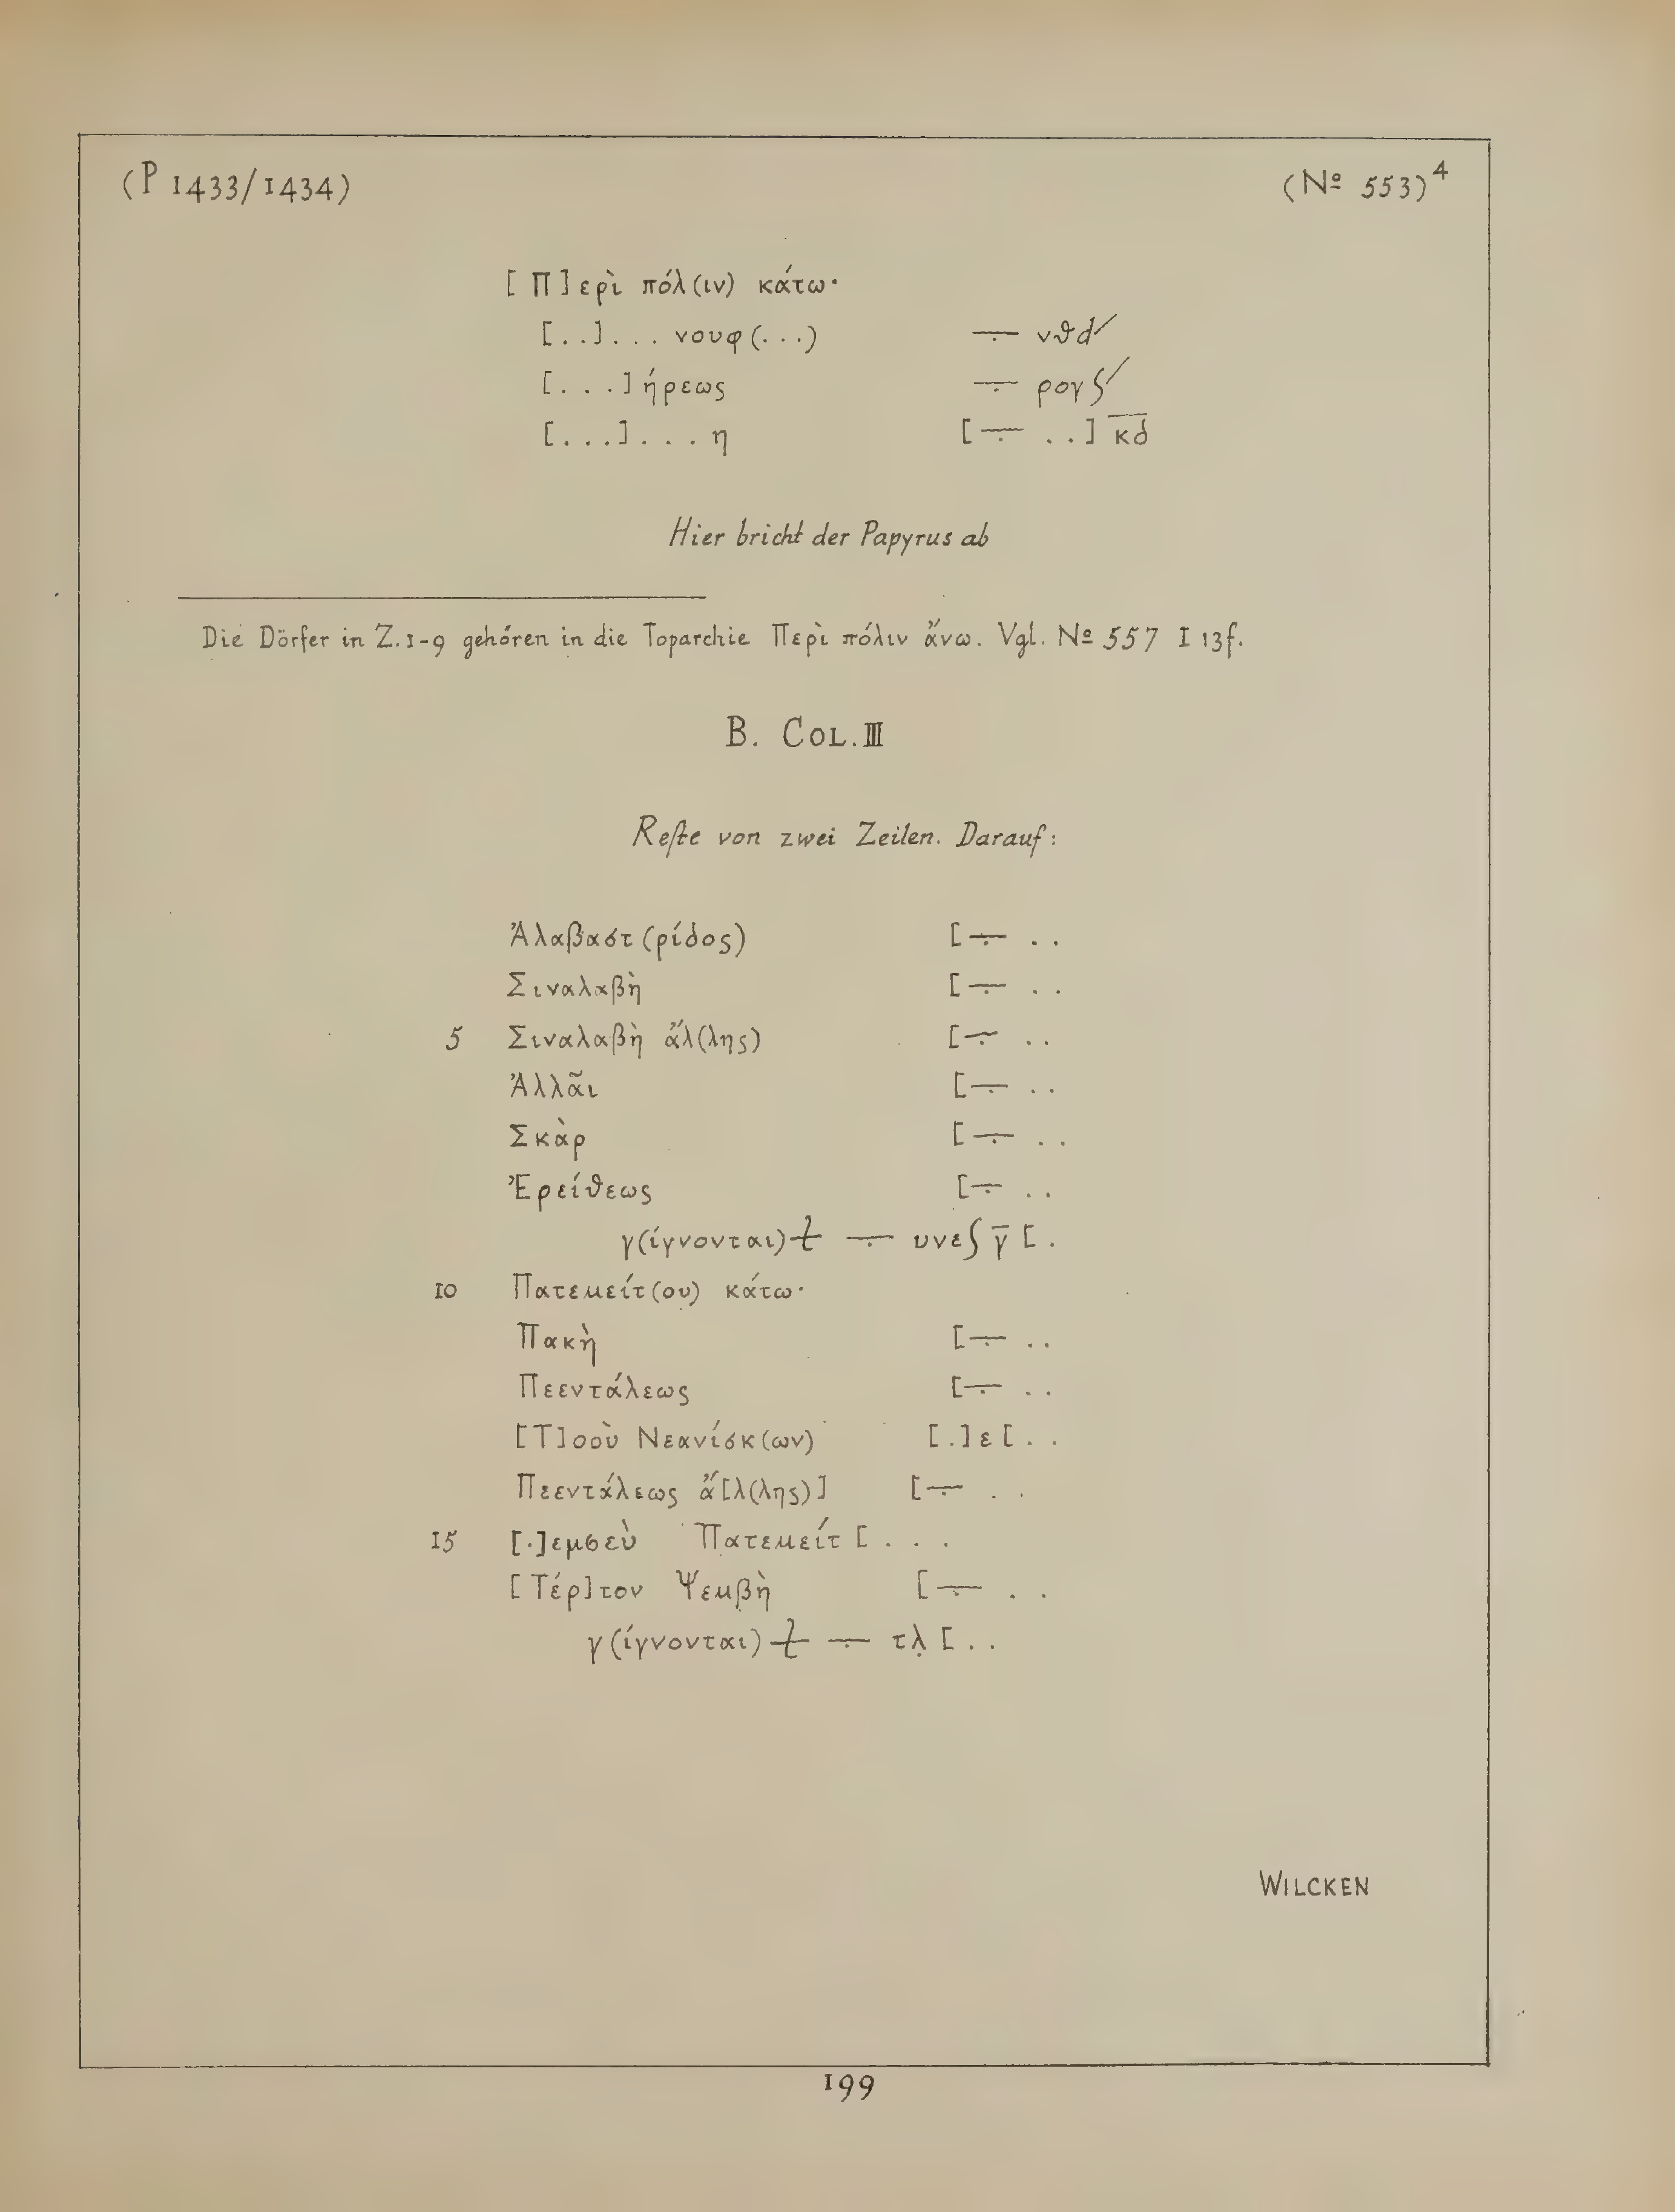 (P 1433/1434) (Nº 553)⁴
[Π]ερὶ πόλ(ιν) κάτω·
[..]... νουφ(...) ⨪ νθd/
[...]ήρεως ⨪ ρογʃ/
[...]...η [⨪ ..] κ̅δ̅
Hier bricht der Papyrus ab
Die Dörfer in Z. 1-9 gehören in die Toparchie Περὶ πόλιν ἄνω. Vgl. Nº 557 I 13f.
B. COL. III
Reſte von zwei Zeilen. Darauf:
Ἀλαβαστ(ρίδος) [⨪ ..
Σιναλαβὴ [⨪ ..
5 Σιναλαβὴ ἄλ(λης) [⨪ ..
Ἀλλᾶι [⨪ ..
Σκὰρ [⨪ ..
Ἐρείθεως [⨪ ..
γ(ίγνονται) ⨪ υνεʃ γ̅ [.
10 Πατεμείτ(ου) κάτω·
Πακὴ [⨪ ..
Πεεντάλεως [⨪ ..
[Τ]οοὺ Νεανίσκ(ων) [.]ε[..
Πεεντάλεως ἄ[λ(λης)] [⨪ ..
15 [.]εμσεὺ Πατεμείτ[...
[Τέρ]τον Ψεμβὴ [⨪ ..
γ(ίγνονται) ⨪ τλ̣[..
WILCKEN
199